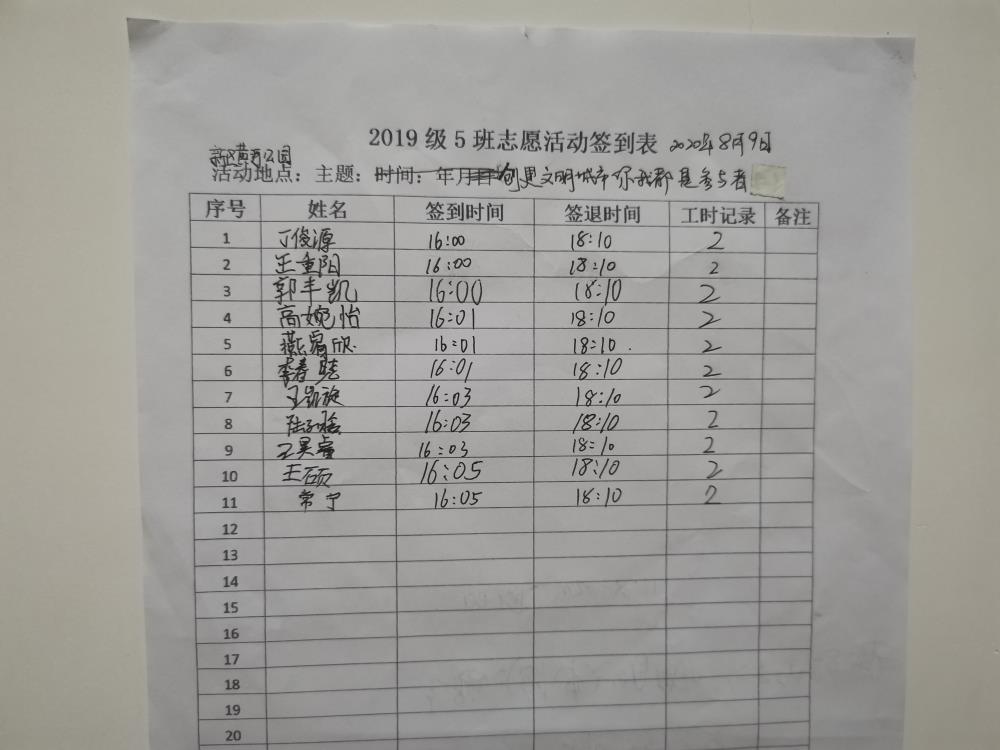 2019 级 5 班志愿活动签到表 2020年8月9日
新区黄河公园
活动地点：主题：时间：年月日创更文明城市 你我都是参与者
序号 姓名 签到时间 签退时间 工时记录 备注
1 丁俊源 16:00 18:10 2
2 王重阳 16:00 18:10 2
3 郭丰凯 16:00 18:10 2
4 高婉怡 16:01 18:10 2
5 燕 欣 16:01 18:10 2
6 李春 16:01 18:10 2
7 王凯旋 16:03 18:10 2
8 陆 16:03 18:10 2
9 王昊睿 16:03 18:10 2
10 王硕 16:05 18:10 2
11 常宁 16:05 18:10 2
12
13
14
15
16
17
18
19
20